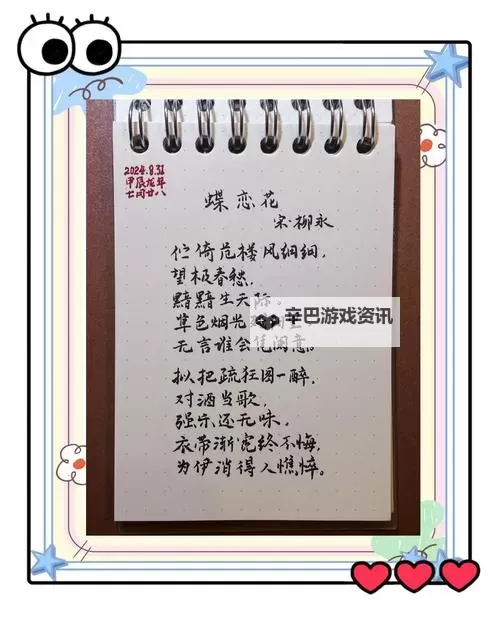 2024.8.31
甲辰龙年
七月廿八
蝶恋花
宋·柳永
伫倚危楼风细细,
望极春愁,
黯黯生天际。
草色烟光
辛巴游戏资讯
无言谁会凭阑意。
拟把疏狂图一醉,
对酒当歌,
强乐还无味,
衣带渐宽终不悔,
为伊消得人憔悴。